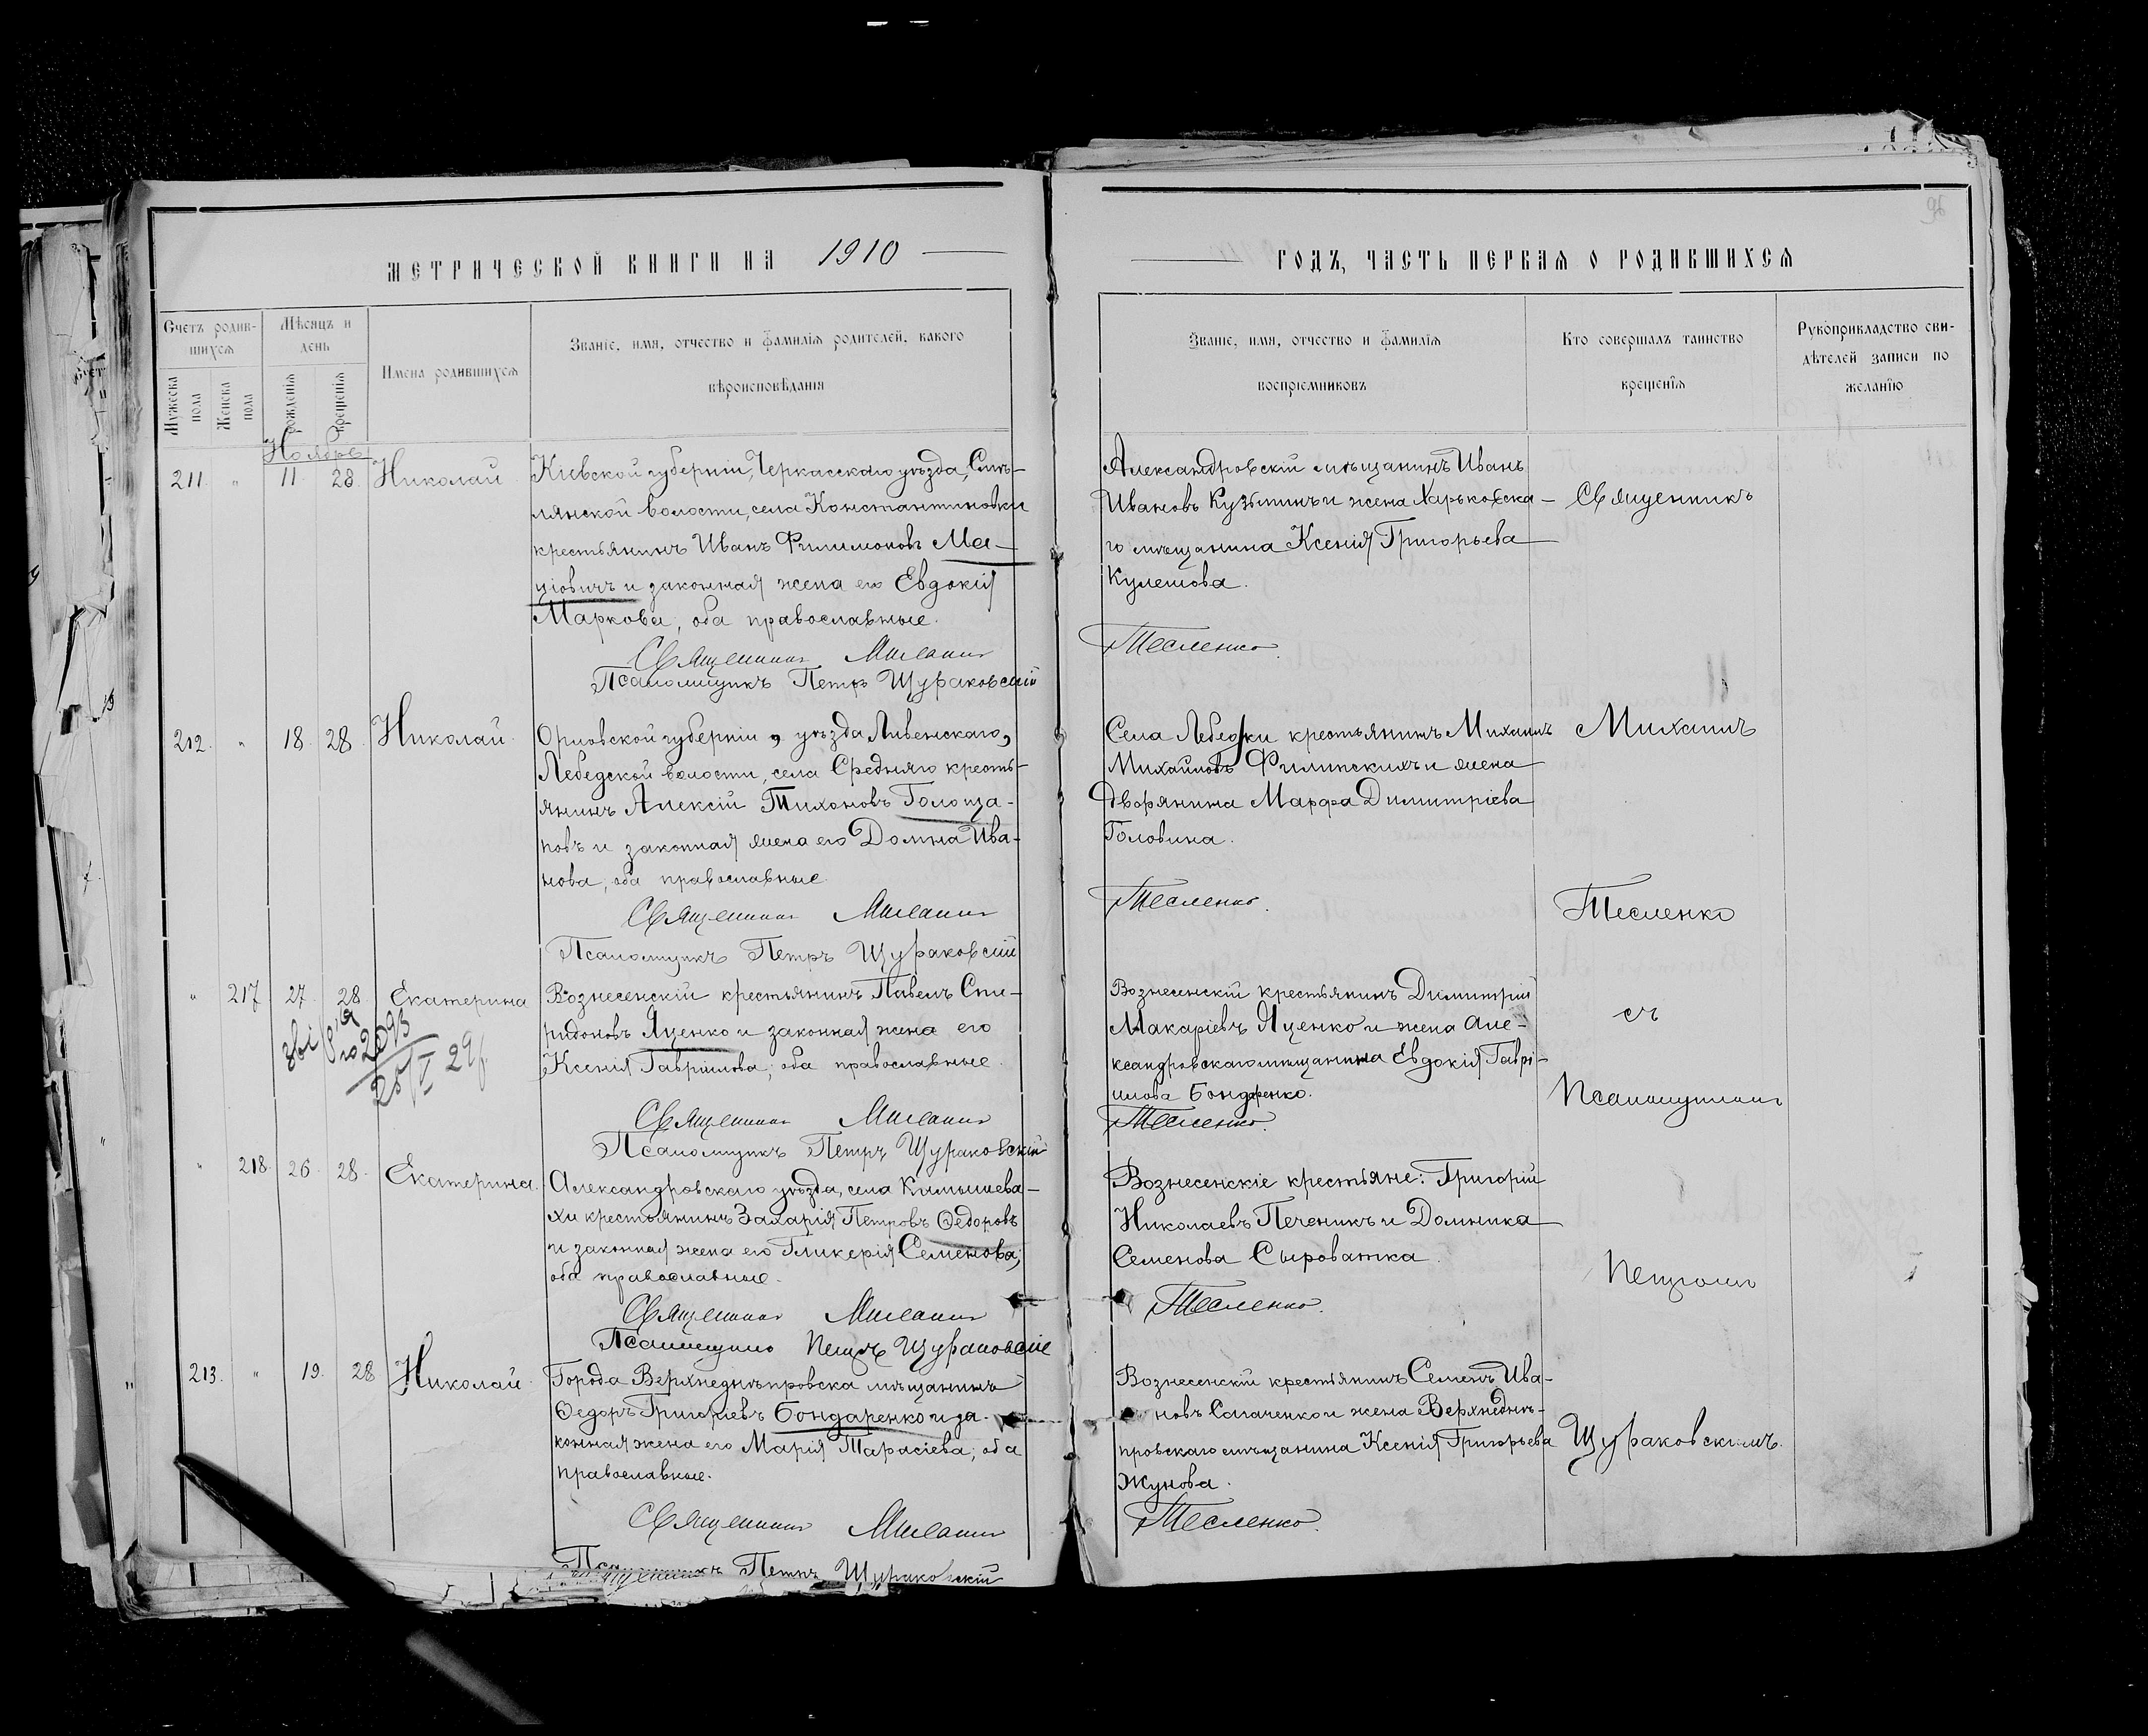 96
МЕТРИЧЕСКОЙ КНИГИ НА 1910 ГОДЪ, ЧАСТЬ ПЕРВАЯ О РОДИВШИХСЯ
Счетъ родив-
шихся
Мужеска пола
Женска пола
Мѣсяцъ и
день
рожденія
крещенія
Имена родившихся
Званіе, имя, отчество и фамилія родителей, какого
вѣроисповѣданія
Званіе, имя, отчество и фамилія
воспріемниковъ
Кто совершалъ таинство
крещенія
Рукоприкладство сви-
дѣтелей записи по
желанію
Ноябрь
211 " 11 28 Николай
Кіевской губерніи, Черкасскаго уѣзда, Смѣ-
лянской волости, села Константиновки
крестьянинъ Иванъ Филимоновъ Ма-
ціовичъ и законная жена его Евдокія
Маркова, оба православные.
Священникъ
Псаломщикъ Петръ Щураковскій
Александровскій мѣщанинъ Иванъ
Ивановъ Кузьминъ и жена Харьковска-
го мѣщанина Ксенія Григорьева
Кулешова.
Тесленко.
212. " 18. 28. Николай.
Орловской губерніи, уѣзда Ливенскаго,
Лебедской волости, села Средняго кресть-
янинъ Алексій Тихоновъ Голоща-
повъ и законная жена его Домна Ива-
нова, оба православные
Священникъ
Псаломщикъ Петръ Щураковскій
Села Лебедки крестьянинъ Михаилъ
Михайловъ Филинскихъ и жена
дворянина Марфа Димитріева
Головина.
Тесленко.
" 217 27 28 Екатерина
Вознесенскій крестьянинъ Павелъ Спи-
ридоновъ Яценко и законная жена его
Ксенія Гавриилова, оба православные.
Священникъ
Псаломщикъ Петръ Щураковскій
Вознесенскій крестьянинъ Димитрій
Макаріевъ Яценко и жена Але-
ксандровскаго мѣщанина Евдокія Гаврі-
илова Бондаренко.
Тесленко.
" 218. 26. 28. Екатерина.
Александровскаго уѣзда, села Камышева-
хи крестьянинъ Захарія Петровъ Ѳедоровъ
и законная жена его Гликерія Семенова,
оба православные.
Священникъ
Псаломщикъ Петръ Щураковскій
Вознесенскіе крестьяне: Григорій
Николаевъ Печеникъ и Домника
Семенова Сыроватка.
Тесленко.
213. " 19. 28 Николай
Города Верхнеднѣпровска мѣщанинъ
Ѳедоръ Григоріевъ Бондаренко и за-
конная жена его Марія Тарасіева, оба
православные.
Священникъ
Псаломщикъ Петръ Щураковскій
Вознесенскій крестьянинъ Семенъ Ива-
новъ и жена Верхнеднѣ-
провскаго мѣщанина Ксенія Григорьева
Жунова.
Тесленко.
Священникъ
Михаилъ
Тесленко
съ
Псаломщикомъ
Петромъ
Щураковскимъ.